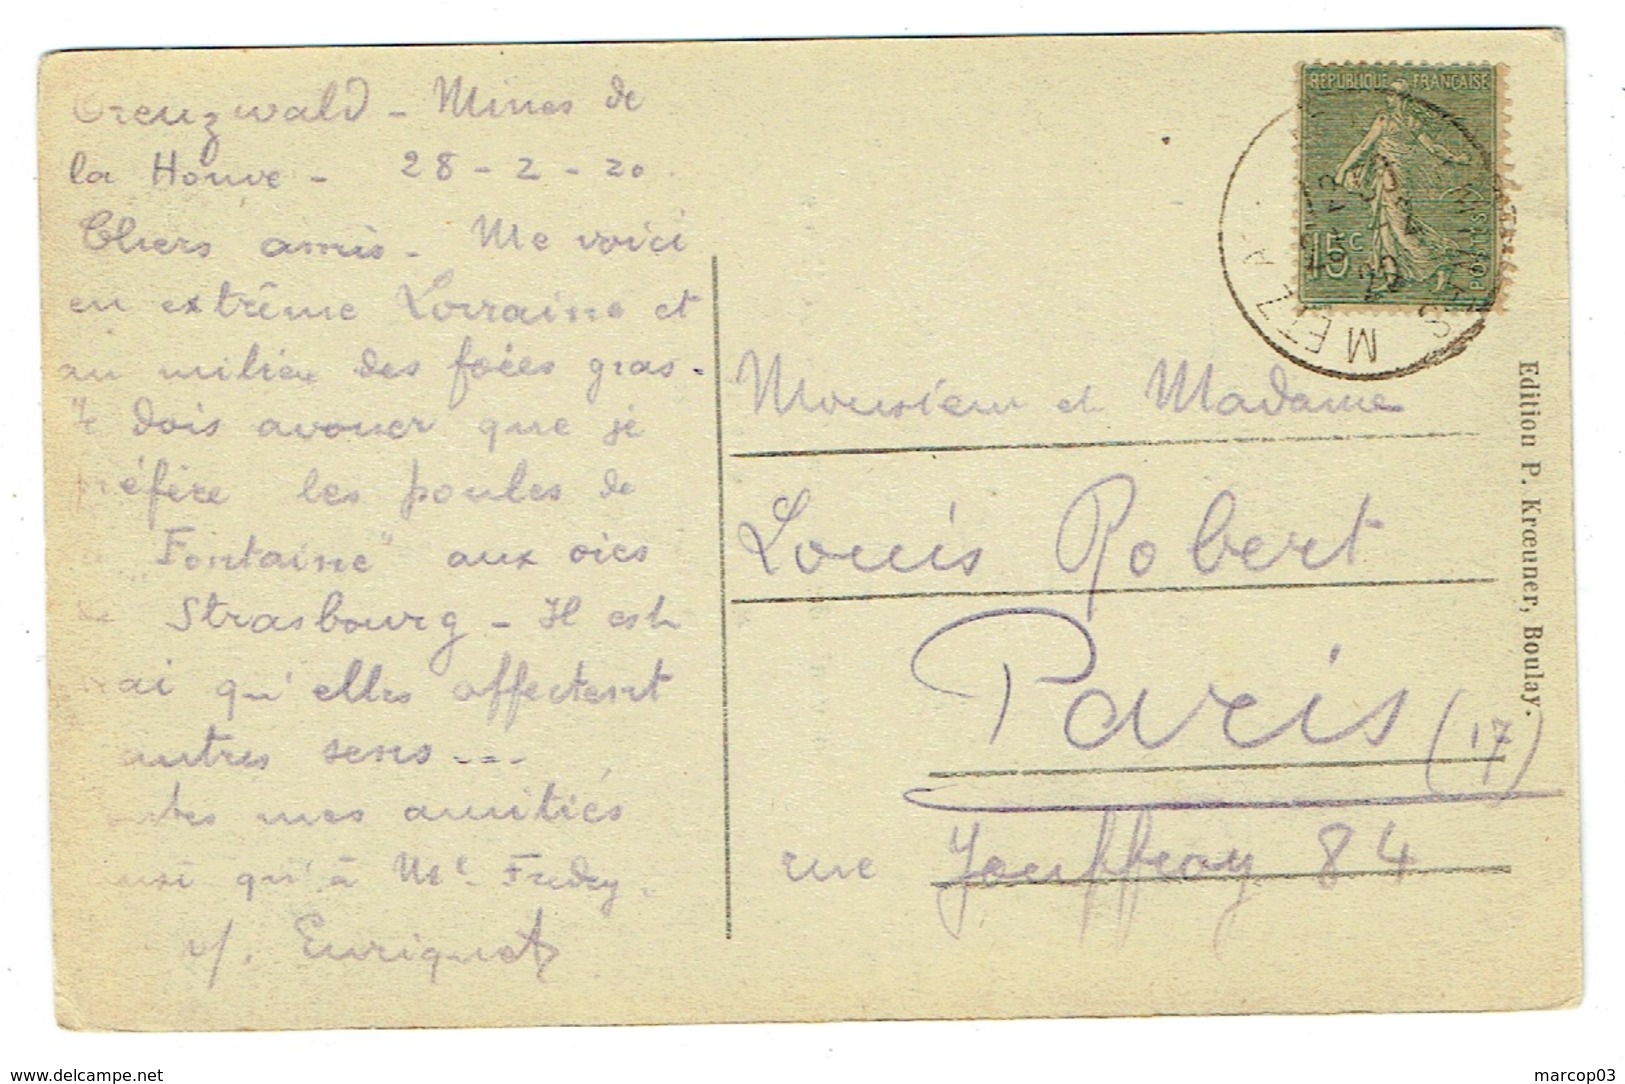 Creuzwald - Mines de
la Houve - 28-2-20
Chers amis - Me voici
en extrême Lorraine et
au milieu des foies gras -
dois avouer que je
préfère les poules de
"Fontaine" aux oies
de Strasbourg - Il est
vrai qu'elles affectent
autres sens ---
mes amitiés
qu'à
v/.
REPUBLIQUE FRANÇAISE
15c
POSTES
METZ A
Monsieur et Madame
Louis Robert
Paris (17)
rue Jouffroy 84
Edition P. Krœuner, Boulay.
delcampe.net
marcop03